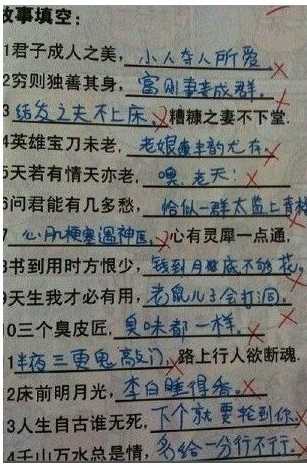 故事填空：
1君子成人之美，小人夺人所爱
2穷则独善其身，富则妻妾成群。
3结发之夫不上床，糟糠之妻不下堂.
4英雄宝刀未老，老娘风韵尤存
5天若有情天亦老，噢，老天！
6问君能有几多愁，恰似一群太监上青楼
7心肌梗塞遇神医，心有灵犀一点通，
8书到用时方恨少，钱到月底不够花，
9天生我才必有用，老鼠儿子会打洞.
0三个臭皮匠，臭味都一样，
1半夜三更鬼敲门，路上行人欲断魂.
2床前明月光，李白睡得香。
3人生自古谁无死，下个就要轮到你、
4千山万水总是情，多给一分行不行、